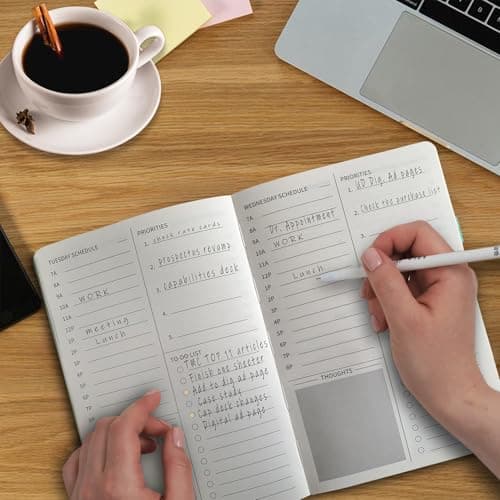 TUESDAY SCHEDULE
7A
8A
9A
10A
11A WORK
12P
1P
2P meeting
3P Lunch
4P
5P
6P
7P
PRIORITIES
1. check rate cards
2. prospectus revamp
3. capabilities deck
4.
5.
TO-DO LIST
TMC TOP 11 articles
Finish one sheeter
Add to dig ad page
Case study
Cap deck changes
Digital ad page
WEDNESDAY SCHEDULE
7A
8A Dr. Appointment
9A
10A WORK
11A
12P Lunch
1P
2P
3P
4P
5P
6P
7P
THOUGHTS
PRIORITIES
1. UD Dig. Ad pages
2. Check the purchase list
3.